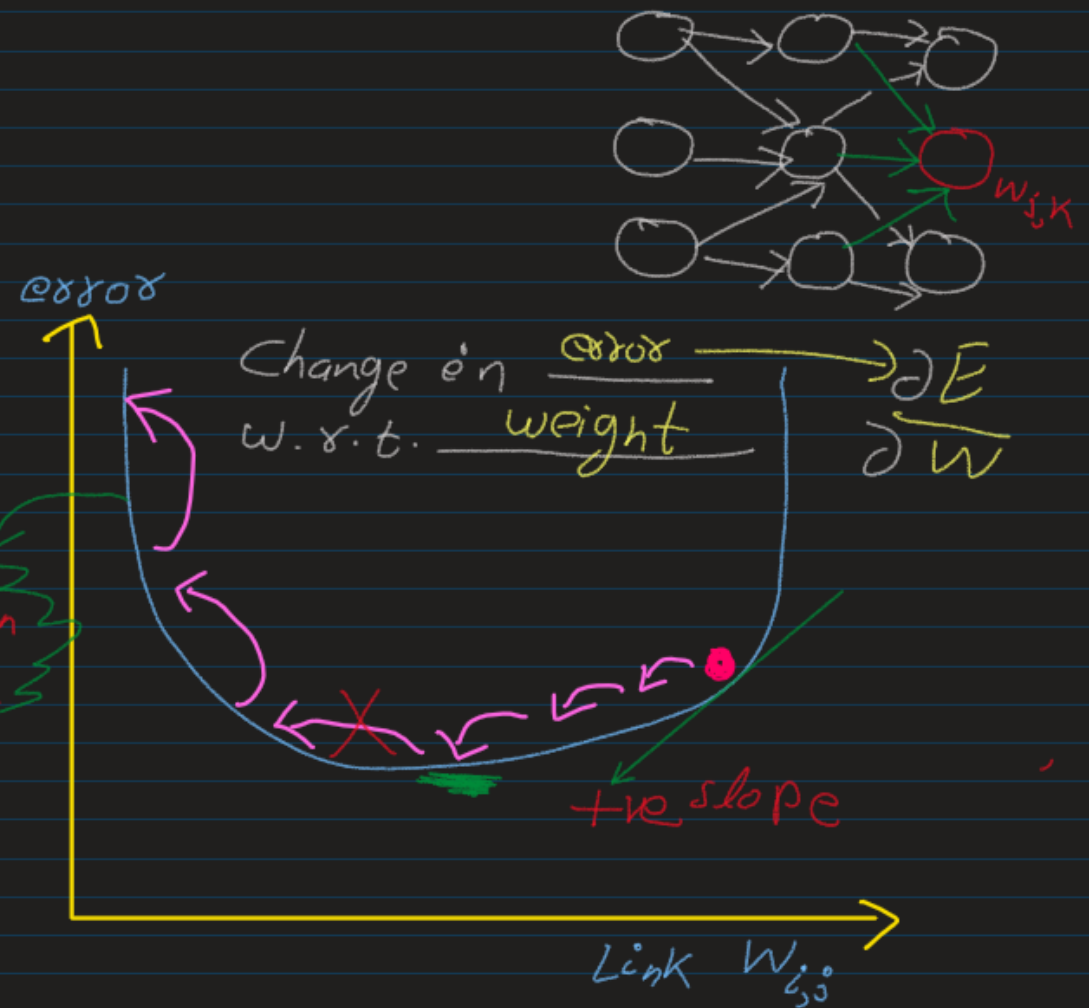 W j,k
error
Change in error → ∂E
w.r.t. weight ∂W
+ve slope
Link W i,j